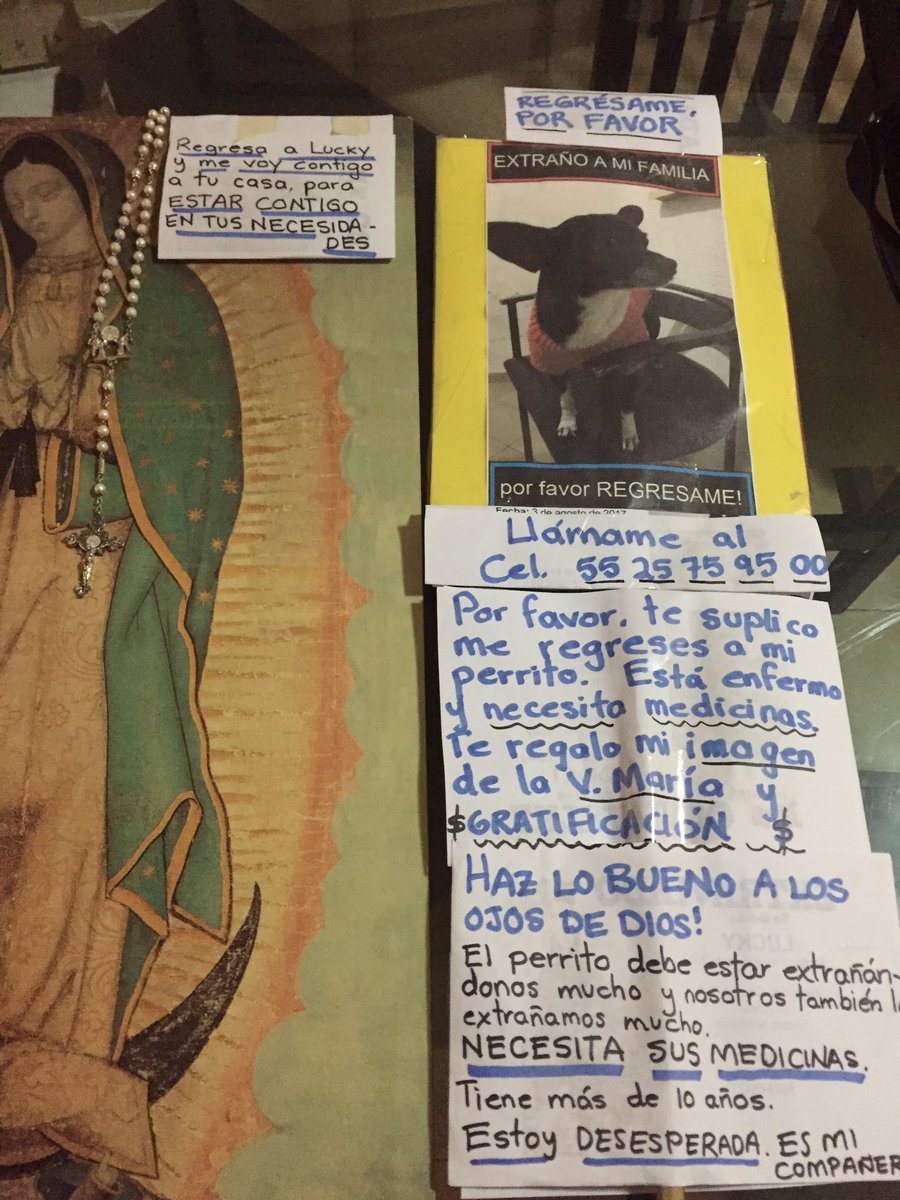 Regresa a Lucky
y me voy contigo
a tu casa, para
ESTAR CONTIGO
EN TUS NECESIDA-
DES
REGRÉSAME,
POR FAVOR
EXTRAÑO A MI FAMILIA
por favor REGRESAME!
Fecha: 3 de agosto de 2017
Llámame al
Cel. 55 25 75 95 00
Por favor, te suplico
me regreses a mi
perrito. Está enfermo
y necesita medicinas.
Te regalo mi imagen
de la V. María y
$GRATIFICACIÓN $
HAZ LO BUENO A LOS
OJOS DE DIOS!
El perrito debe estar extrañán-
donos mucho y nosotros también l
extrañamos mucho.
NECESITA SUS MEDICINAS.
Tiene más de 10 años.
Estoy DESESPERADA. ES MI
COMPAÑER